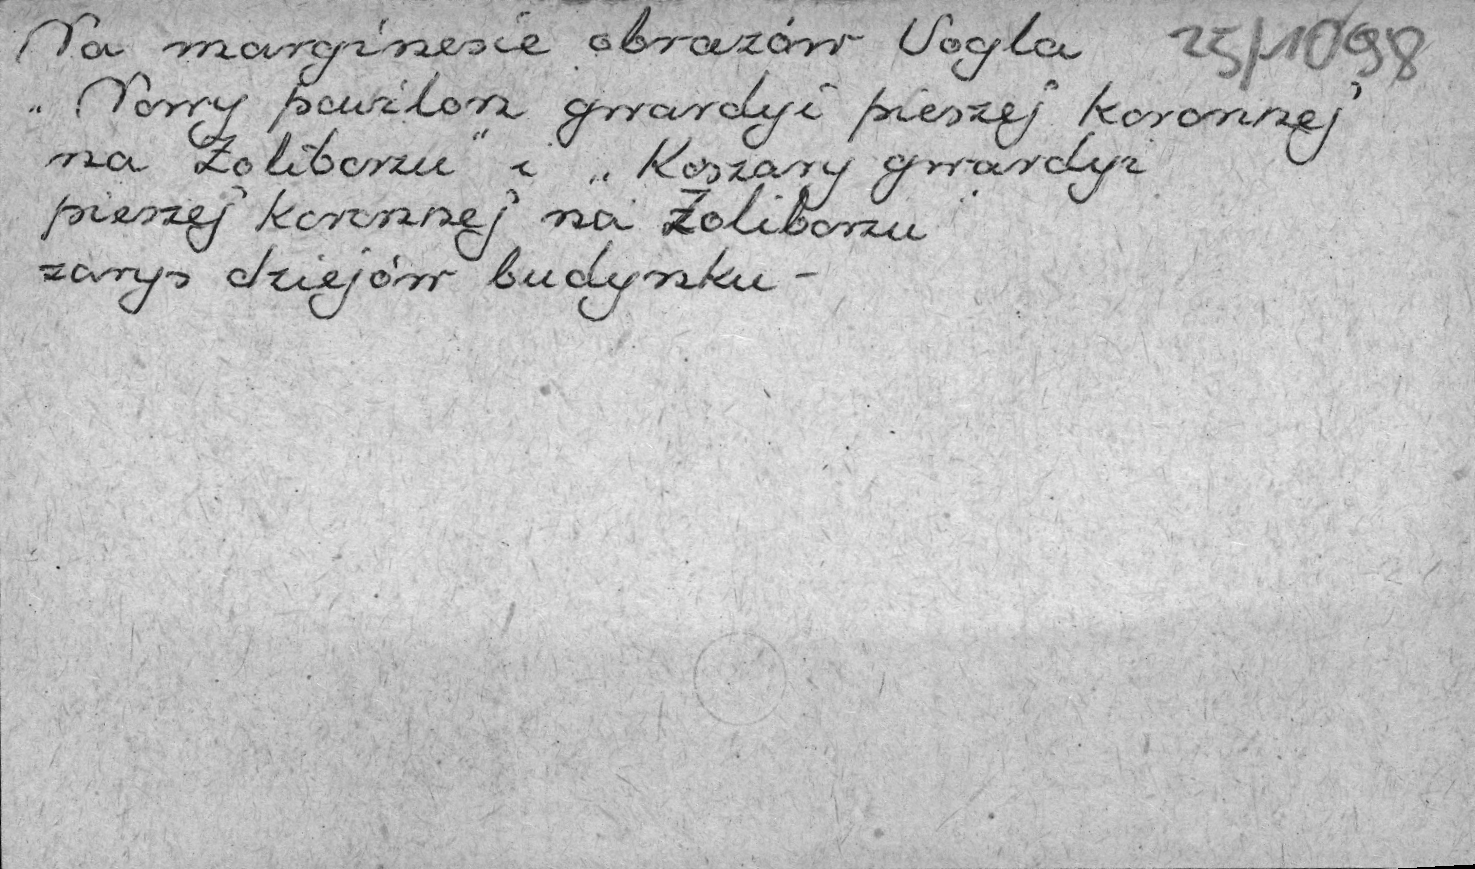 Na marginesie obrazów Vogla 25/1098
„Nowy pawilon gwardyi pieszej koronnej
na Żoliborzu" i „Koszary gwardyi
pieszej koronnej na Żoliborzu
zarys dziejów budynku -